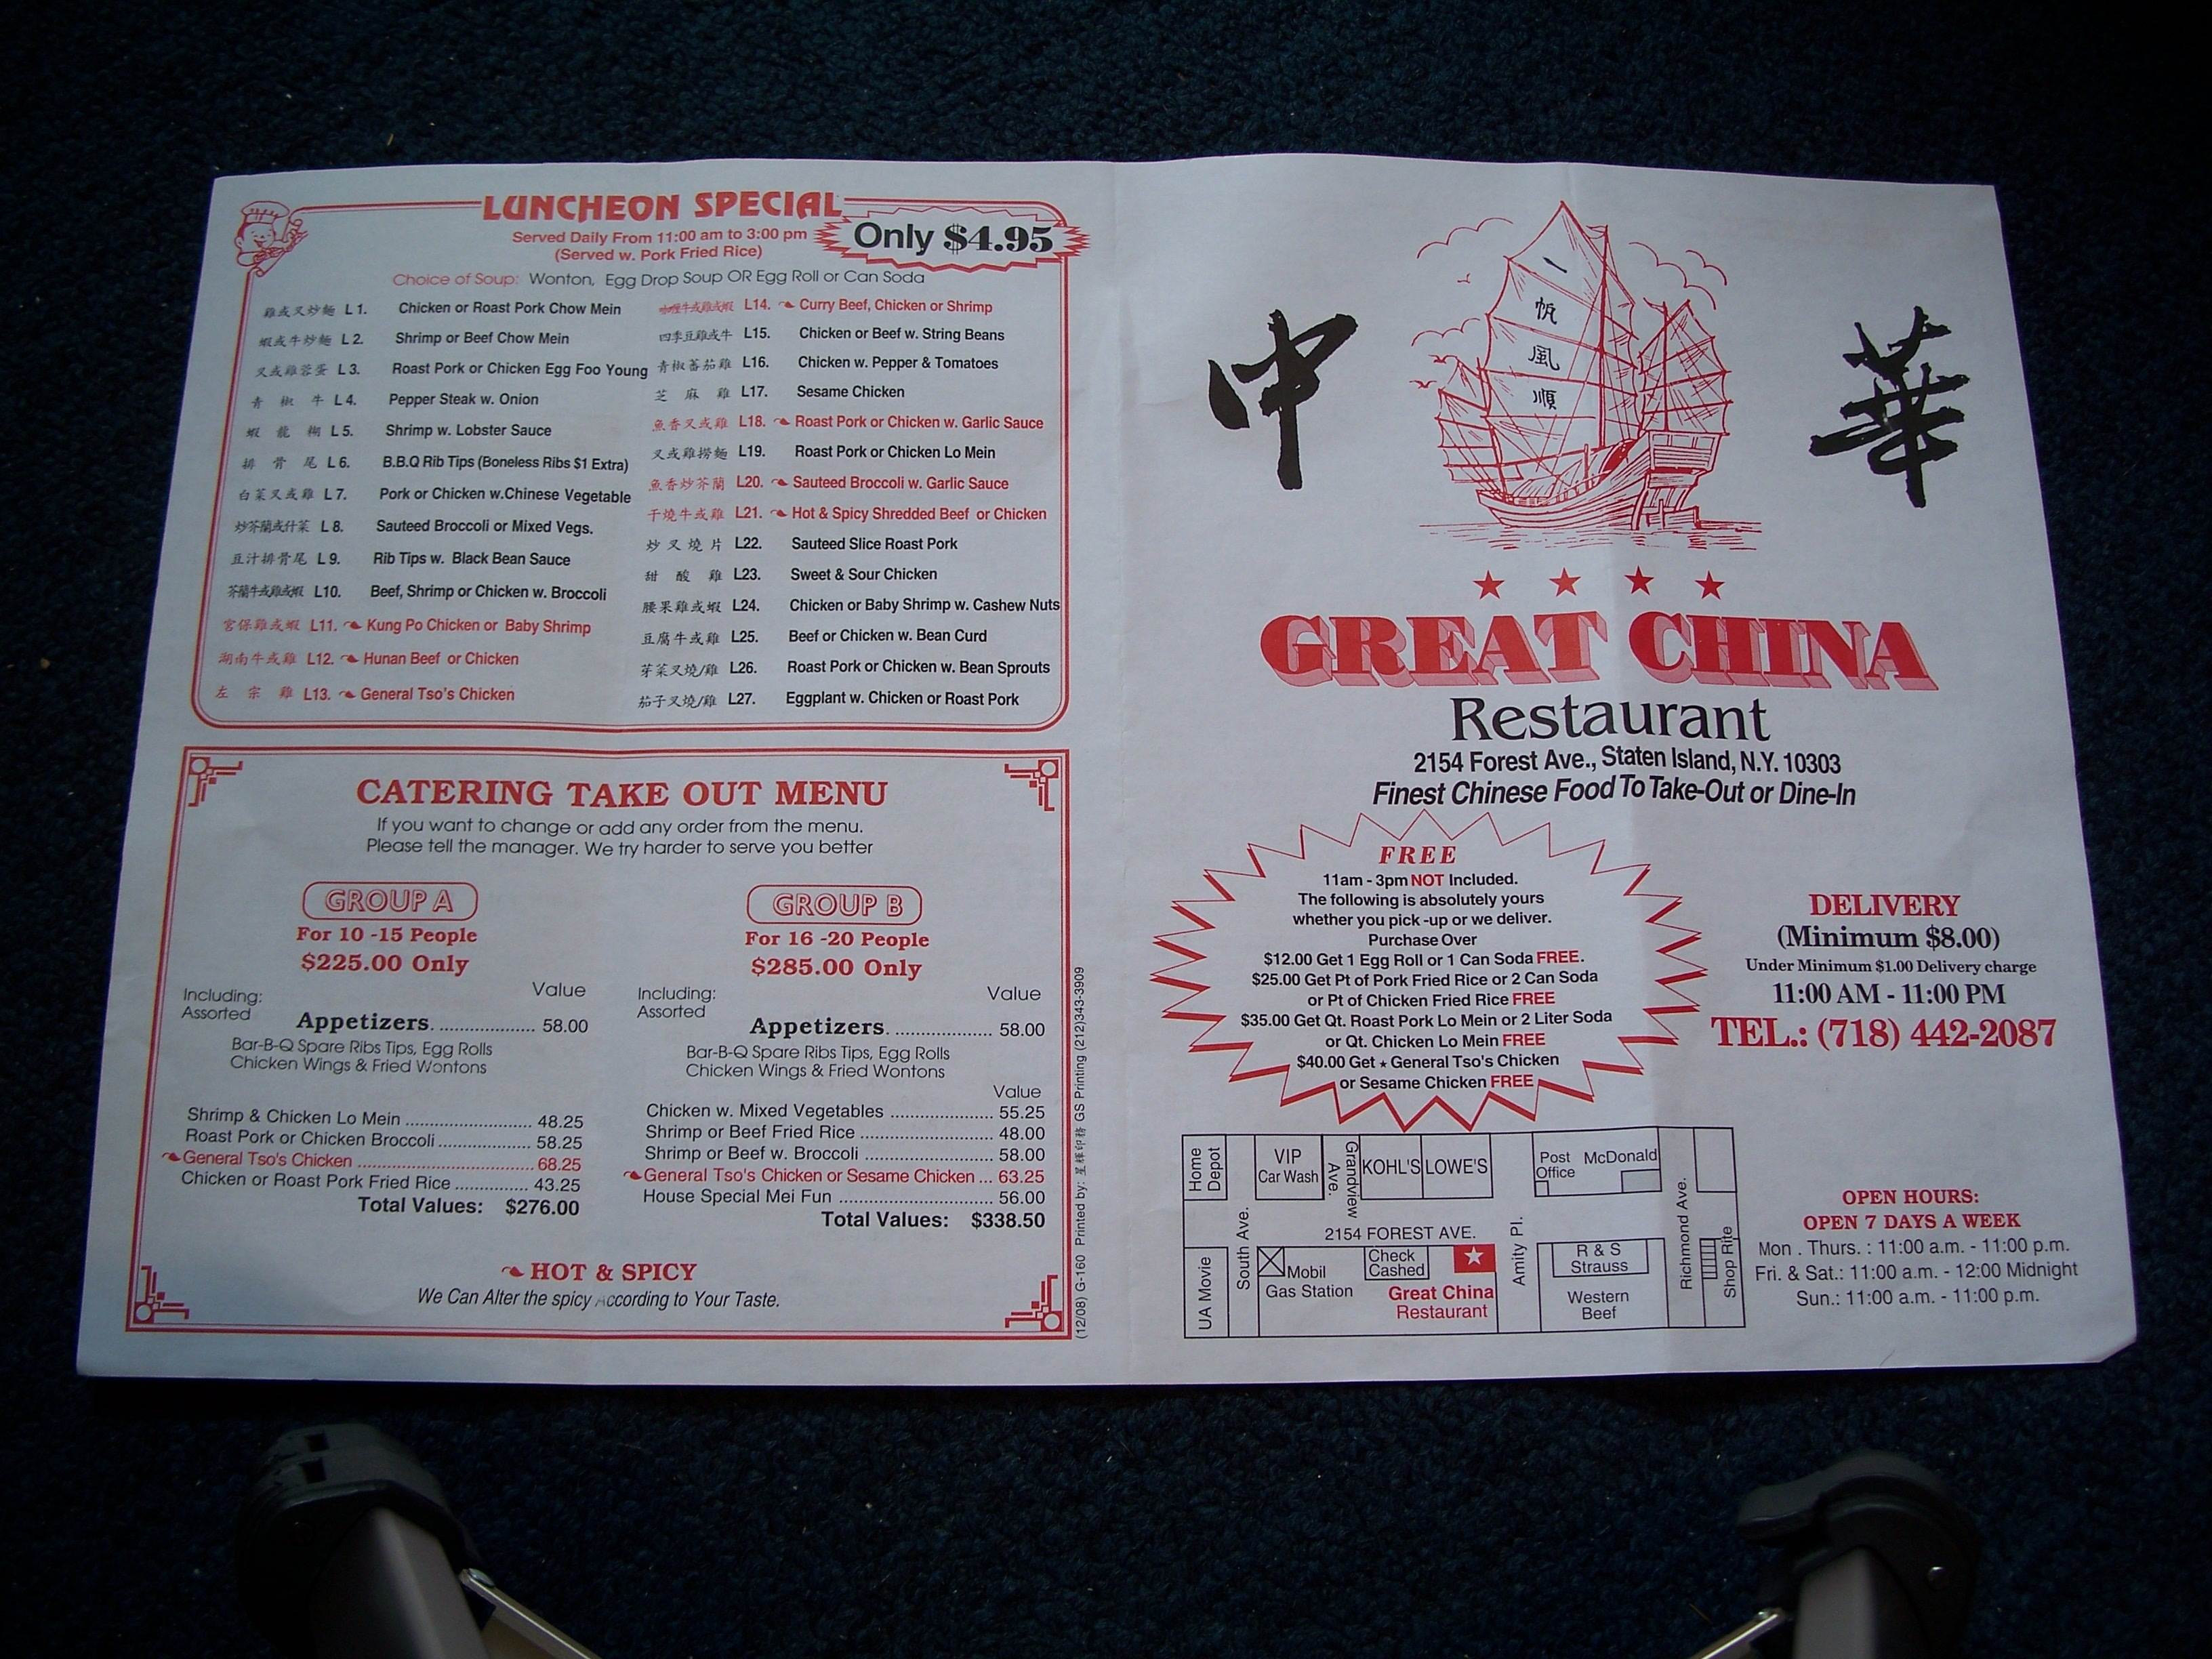 LUNCHEON SPECIAL
Served Daily From 11:00 am to 3:00 pm
(Served w. Pork Fried Rice)
Only $4.95
Choice of Soup: Wonton, Egg Drop Soup OR Egg Roll or Can Soda
雞或叉炒麵 L 1. Chicken or Roast Pork Chow Mein
蝦或牛炒麵 L 2. Shrimp or Beef Chow Mein
叉或雞蓉蛋 L 3. Roast Pork or Chicken Egg Foo Young
青椒牛 L 4. Pepper Steak w. Onion
蝦龍糊 L 5. Shrimp w. Lobster Sauce
排骨尾 L 6. B.B.Q Rib Tips (Boneless Ribs $1 Extra)
白菜叉或雞 L 7. Pork or Chicken w.Chinese Vegetable
炒芥蘭或什菜 L 8. Sauteed Broccoli or Mixed Vegs.
豆汁排骨尾 L 9. Rib Tips w. Black Bean Sauce
芥蘭牛或雞或蝦 L10. Beef, Shrimp or Chicken w. Broccoli
宮保雞或蝦 L11. Kung Po Chicken or Baby Shrimp
湖南牛或雞 L12. Hunan Beef or Chicken
左宗雞 L13. General Tso's Chicken
咖喱牛或雞或蝦 L14. Curry Beef, Chicken or Shrimp
四季豆雞或牛 L15. Chicken or Beef w. String Beans
青椒蕃茄雞 L16. Chicken w. Pepper & Tomatoes
芝麻雞 L17. Sesame Chicken
魚香叉或雞 L18. Roast Pork or Chicken w. Garlic Sauce
叉或雞撈麵 L19. Roast Pork or Chicken Lo Mein
魚香炒芥蘭 L20. Sauteed Broccoli w. Garlic Sauce
干燒牛或雞 L21. Hot & Spicy Shredded Beef or Chicken
炒叉燒片 L22. Sauteed Slice Roast Pork
甜酸雞 L23. Sweet & Sour Chicken
腰果雞或蝦 L24. Chicken or Baby Shrimp w. Cashew Nuts
豆腐牛或雞 L25. Beef or Chicken w. Bean Curd
芽菜叉燒/雞 L26. Roast Pork or Chicken w. Bean Sprouts
茄子叉燒/雞 L27. Eggplant w. Chicken or Roast Pork
CATERING TAKE OUT MENU
If you want to change or add any order from the menu.
Please tell the manager. We try harder to serve you better
GROUP A
For 10 -15 People
$225.00 Only
Including:
Assorted
Value
Appetizers. .................. 58.00
Bar-B-Q Spare Ribs Tips, Egg Rolls
Chicken Wings & Fried Wontons
Shrimp & Chicken Lo Mein ........................ 48.25
Roast Pork or Chicken Broccoli ................. 58.25
General Tso's Chicken .................................. 68.25
Chicken or Roast Pork Fried Rice ............... 43.25
Total Values: $276.00
GROUP B
For 16 -20 People
$285.00 Only
Including:
Assorted
Value
Appetizers. .................. 58.00
Bar-B-Q Spare Ribs Tips, Egg Rolls
Chicken Wings & Fried Wontons
Value
Chicken w. Mixed Vegetables .................... 55.25
Shrimp or Beef Fried Rice ......................... 48.00
Shrimp or Beef w. Broccoli ......................... 58.00
General Tso's Chicken or Sesame Chicken ... 63.25
House Special Mei Fun ............................. 56.00
Total Values: $338.50
HOT & SPICY
We Can Alter the spicy According to Your Taste.
(12/08) G-160 Printed by: 星輝印務 GS Printing (212)343-3909
中
一帆風順
華
GREAT CHINA
Restaurant
2154 Forest Ave., Staten Island, N.Y. 10303
Finest Chinese Food To Take-Out or Dine-In
FREE
11am - 3pm NOT Included.
The following is absolutely yours
whether you pick -up or we deliver.
Purchase Over
$12.00 Get 1 Egg Roll or 1 Can Soda FREE.
$25.00 Get Pt of Pork Fried Rice or 2 Can Soda
or Pt of Chicken Fried Rice FREE
$35.00 Get Qt. Roast Pork Lo Mein or 2 Liter Soda
or Qt. Chicken Lo Mein FREE
$40.00 Get ★ General Tso's Chicken
or Sesame Chicken FREE
DELIVERY
(Minimum $8.00)
Under Minimum $1.00 Delivery charge
11:00 AM - 11:00 PM
TEL.: (718) 442-2087
Home Depot
VIP
Car Wash
Grandview Ave.
KOHL'S
LOWE'S
Post Office
McDonald
South Ave.
2154 FOREST AVE.
Amity Pl.
Richmond Ave.
Shop Rite
UA Movie
Mobil
Gas Station
Check
Cashed
Great China
Restaurant
R & S
Strauss
Western
Beef
OPEN HOURS:
OPEN 7 DAYS A WEEK
Mon . Thurs. : 11:00 a.m. - 11:00 p.m.
Fri. & Sat.: 11:00 a.m. - 12:00 Midnight
Sun.: 11:00 a.m. - 11:00 p.m.